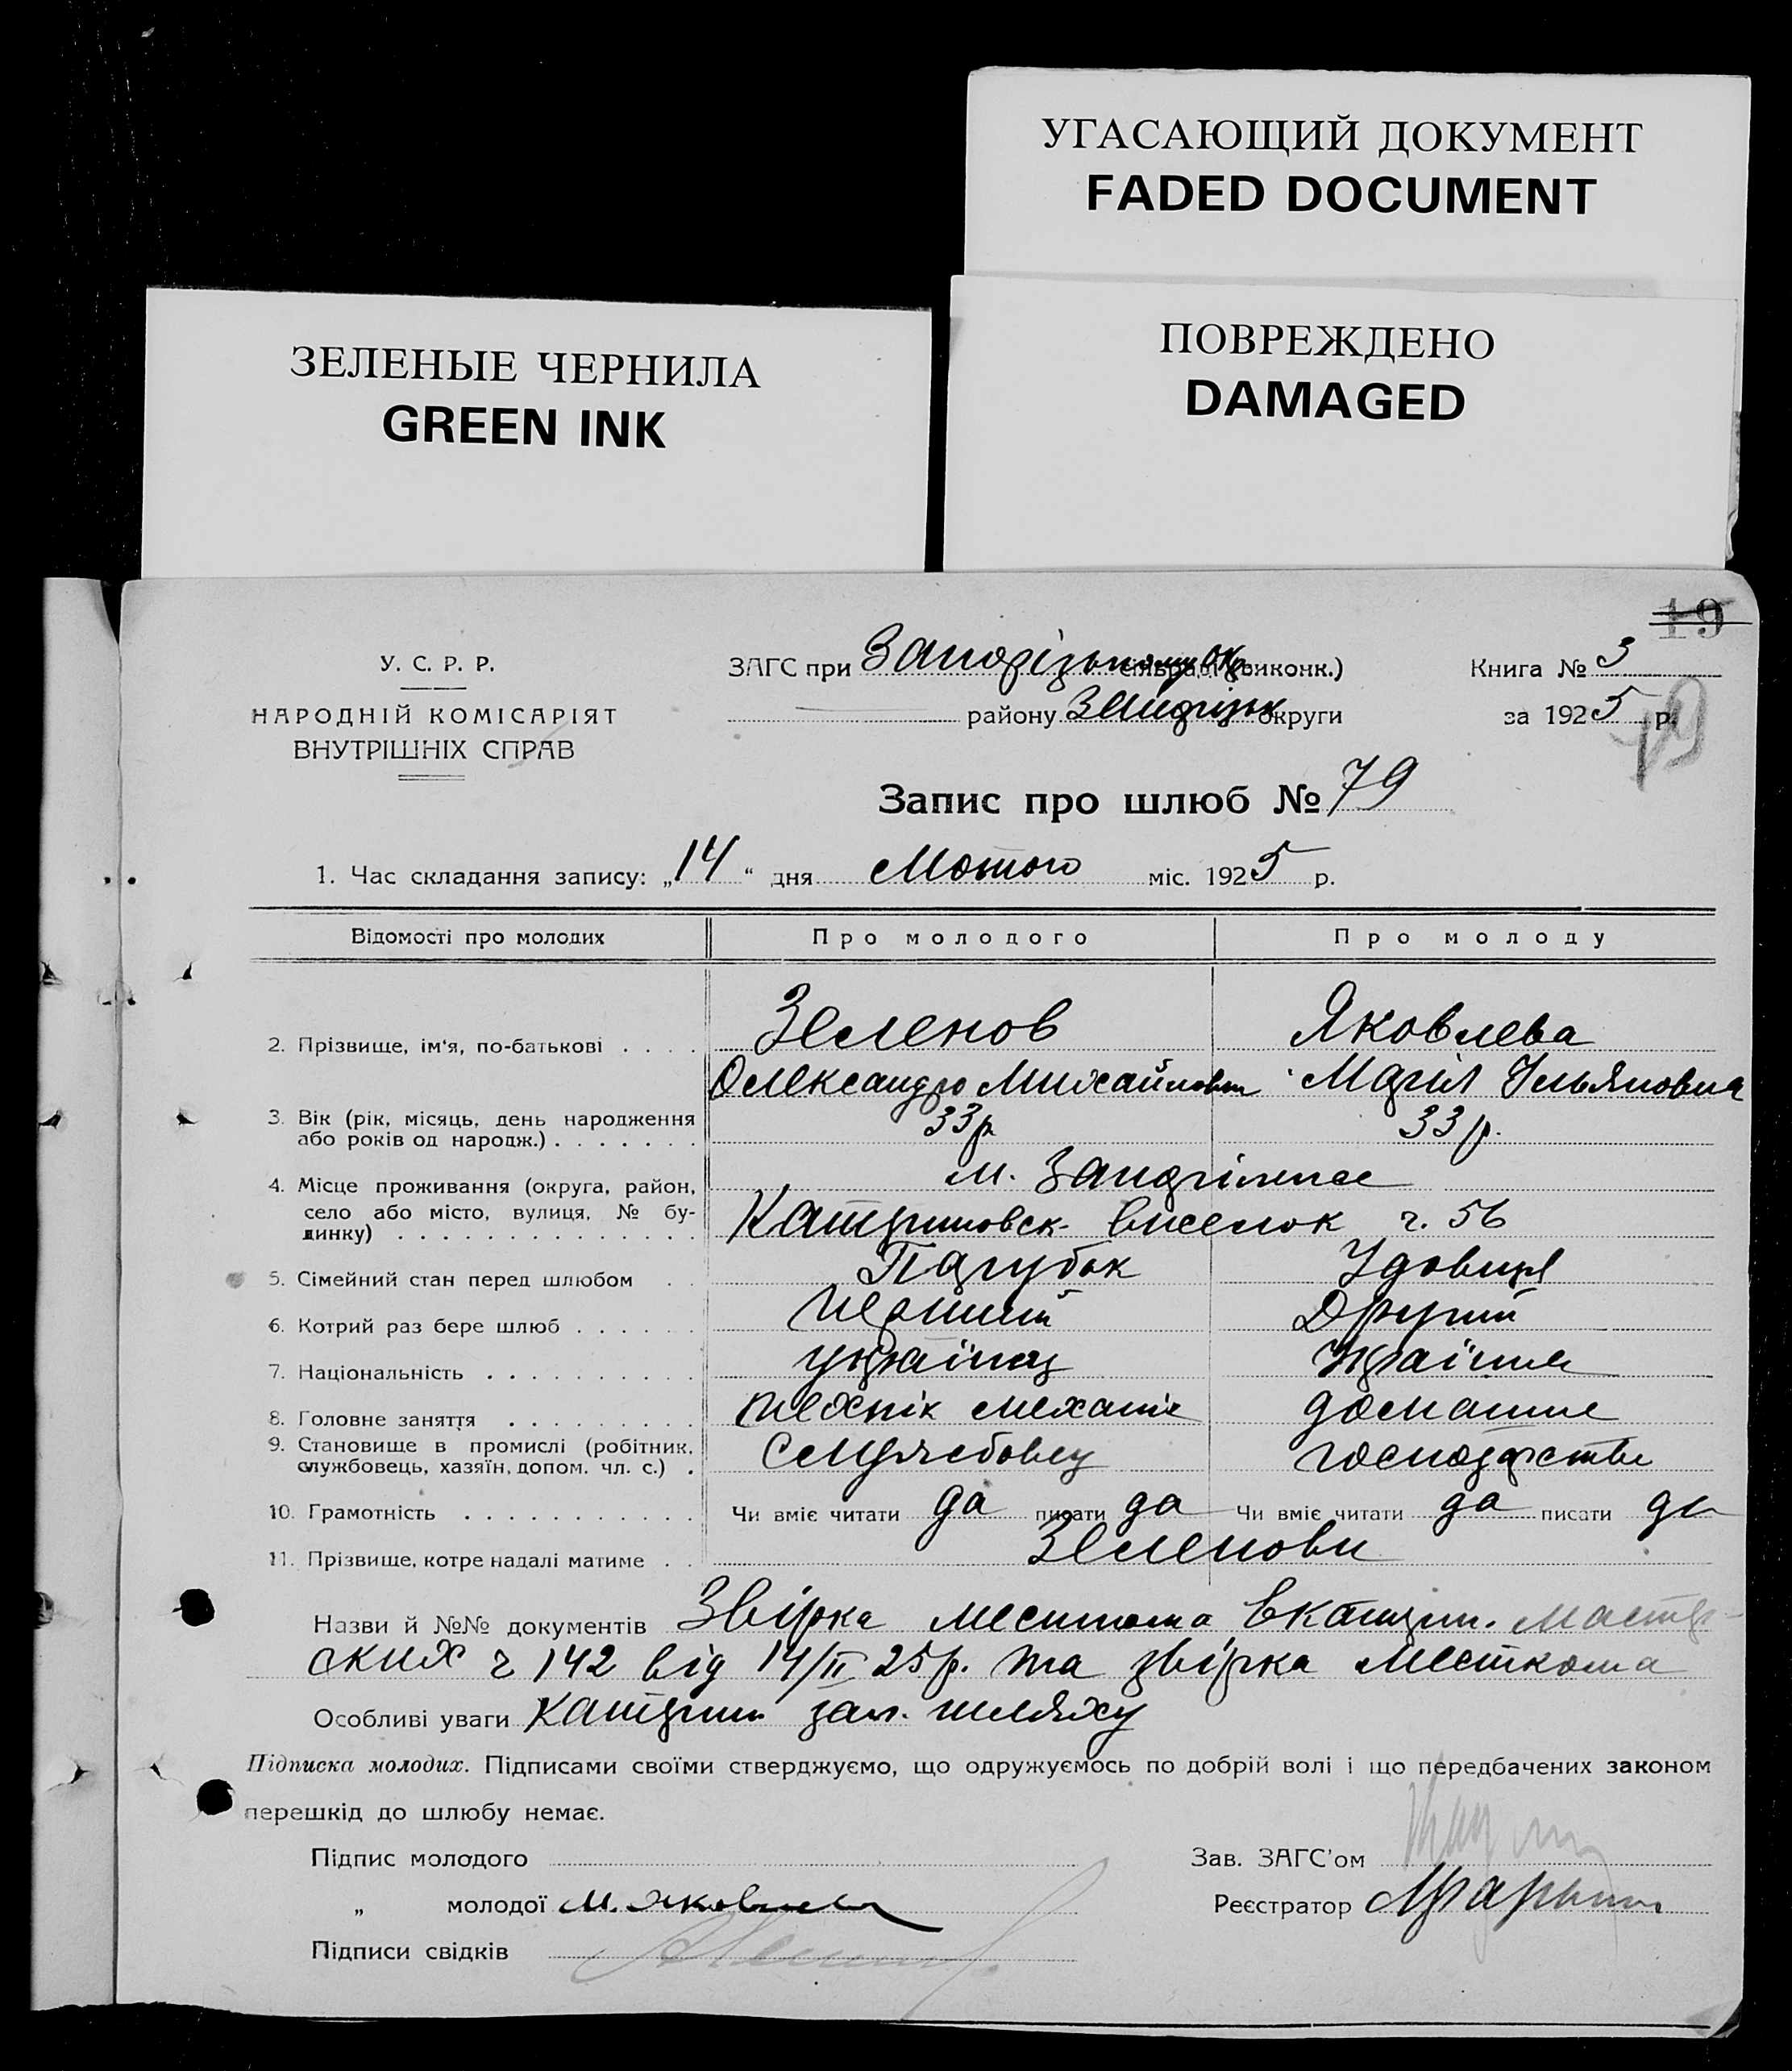 УГАСАЮЩИЙ ДОКУМЕНТ
FADED DOCUMENT
ЗЕЛЕНЫЕ ЧЕРНИЛА
GREEN INK
ПОВРЕЖДЕНО
DAMAGED
19
У. С. Р. Р.
НАРОДНІЙ КОМІСАРІЯТ
ВНУТРІШНІХ СПРАВ
ЗАГС при Запорізькому Окр. сільраді (виконк.)
району Запоріжськ округи
Книга № 3
за 1925 р.
79
Запис про шлюб № 79
1. Час складання запису: „14“ дня Лютого міс. 1925 р.
Відомості про молодих Про молодого Про молоду
2. Прізвище, ім'я, по-батькові Зеленов Яковлева
Олександр Михайлович Марія Ульяновна
3. Вік (рік, місяць, день народження або років од народж.) 33 р. 33 р.
4. Місце проживання (округа, район, село або місто, вулиця, № будинку) м. Запоріжжє
Катериновск. виселок ч. 56
5. Сімейний стан перед шлюбом Парубок Удовиця
6. Котрий раз бере шлюб перший Другий
7. Національність українец Україн
8. Головне заняття технік механік домашнє
9. Становище в промислі (робітник, службовець, хазяїн, допом. чл. с.) Службовец господарство
10. Грамотність Чи вміє читати да писати да Чи вміє читати да писати да
11. Прізвище, котре надалі матиме Зеленови
Назви й №№ документів Звірка месткома Екатерин. мастер-
ских ч 142 від 14/II 25 р. та звірка месткома
Особливі уваги Катерин зал. шляху
Підписка молодих. Підписами своїми стверджуємо, що одружуємось по добрій волі і що передбачених законом
перешкід до шлюбу немає.
Підпис молодого
„ молодої М. Яковлева
Підписи свідків
Зав. ЗАГС'ом
Реєстратор